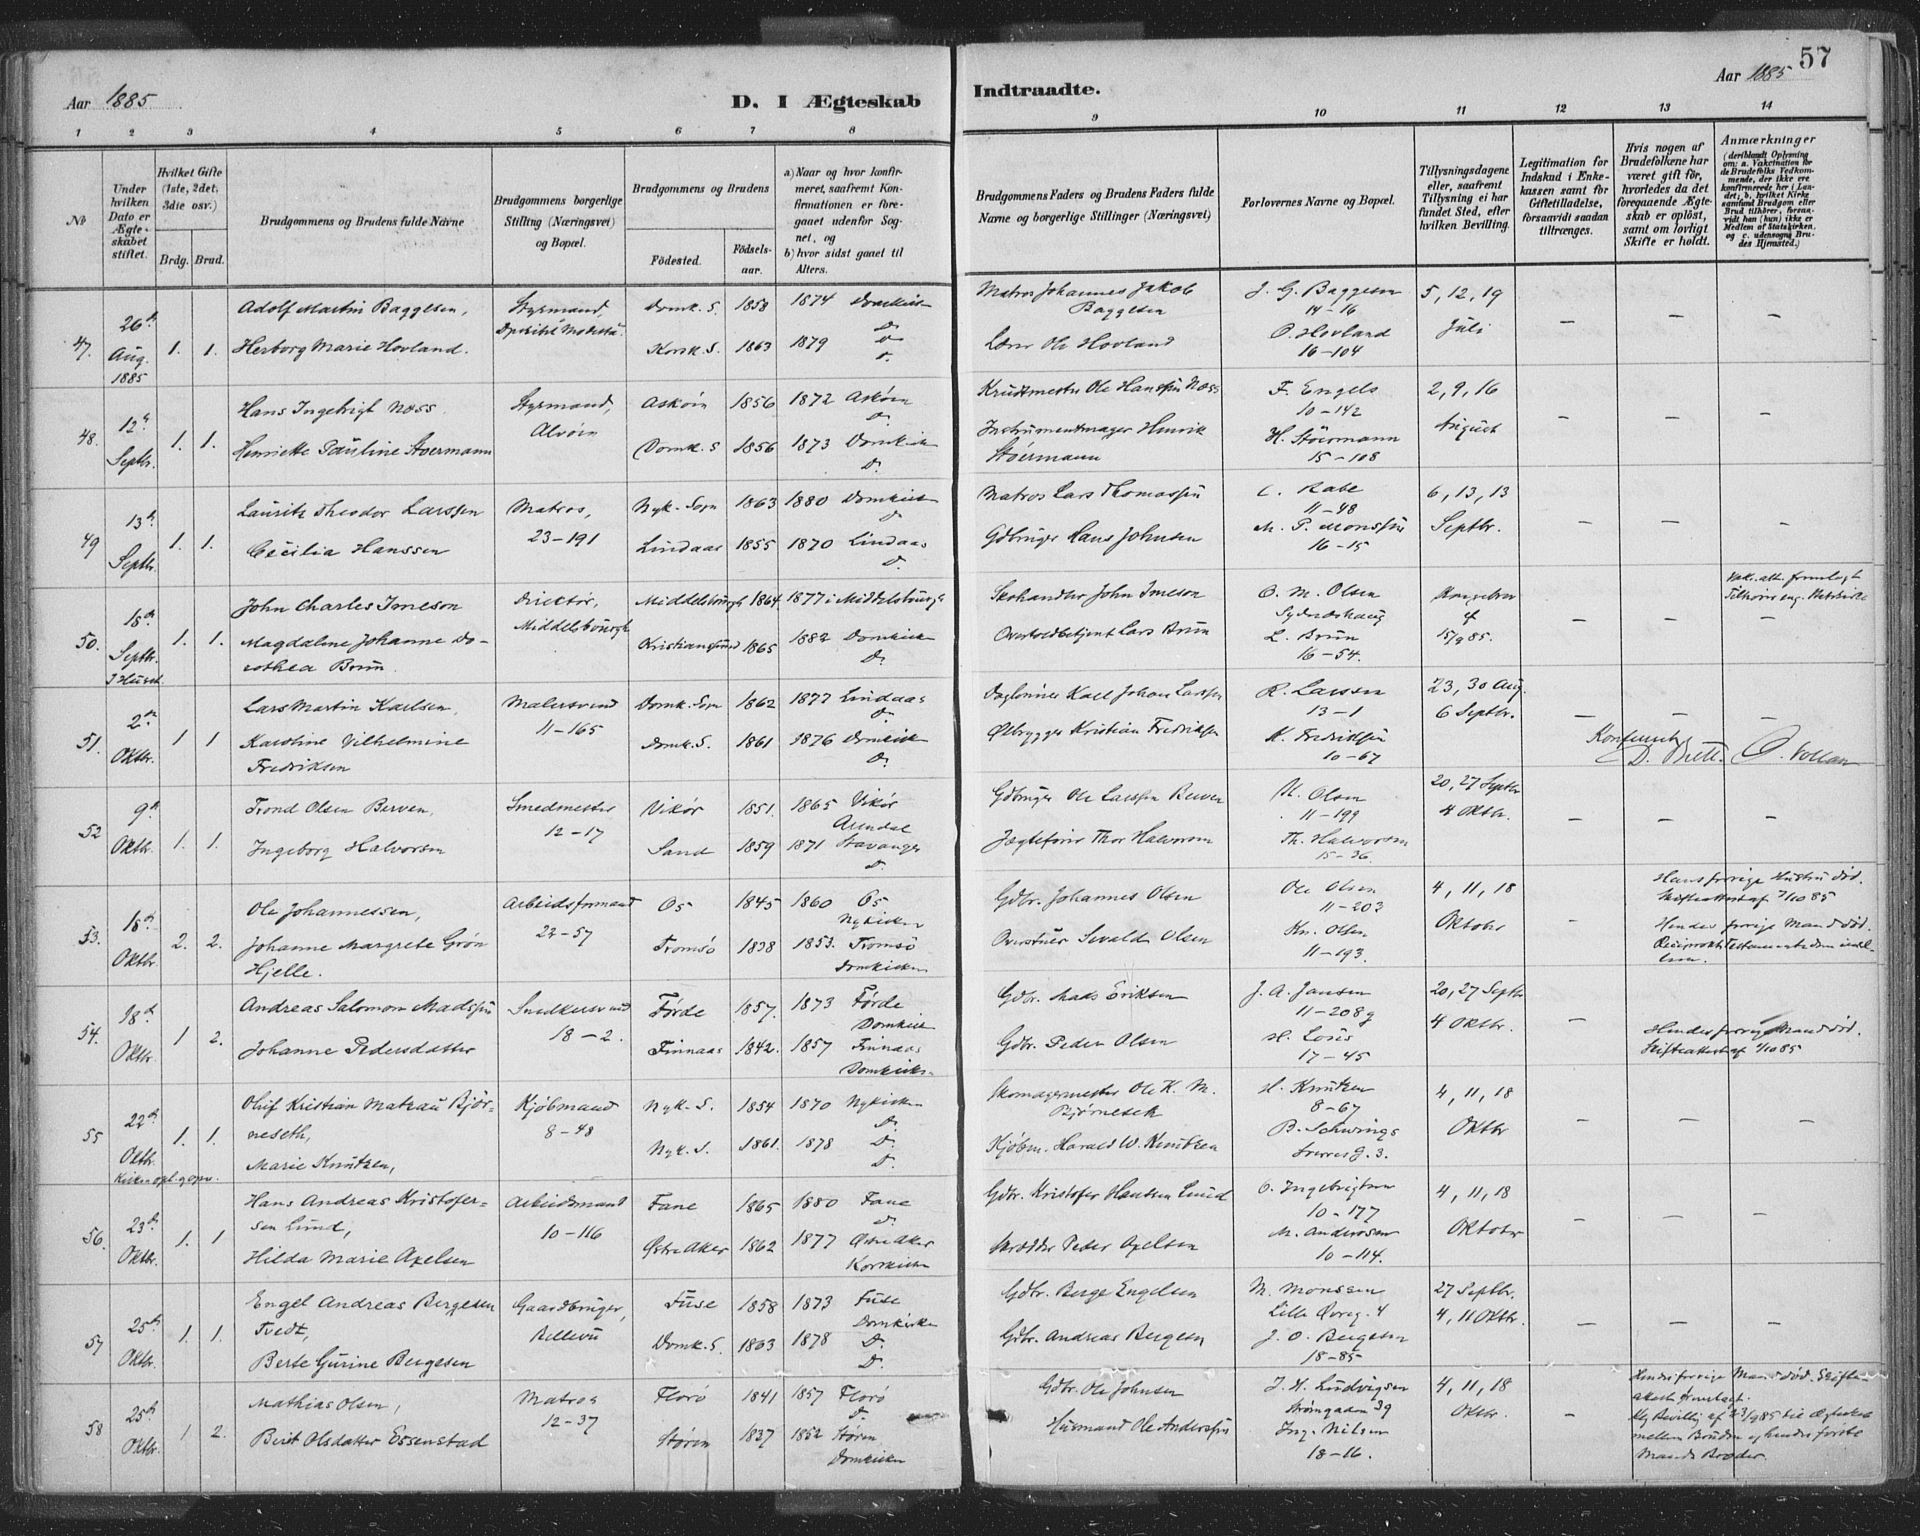 57
Aar 1885
D. I Ægteskab Indtraadte.
Aar 1885
1 2 3 4 5 6 7 8 9 10 11 12 13 14
№
Under hvilken Dato er Ægteskabet stiftet.
Hvilket Gifte (1ste, 2det, 3die osv.)
Brdg. Brud.
Brudgommens og Brudens fulde Navne
Brudgommens borgerlige Stilling (Næringsvei) og Bopæl.
Brudgommens og Brudens
Födested. Födselsaar.
a) Naar og hvor konfirmeret, saafremt Konfirmationen er foregaaet udenfor Sognet, og
b) hvor sidst gaaet til Alters.
Brudgommens Faders og Brudens Faders fulde Navne og borgerlige Stillinger (Næringsvei)
Forlovernes Navne og Bopæl.
Tillysningsdagene eller, saafremt Tillysning ei har fundet Sted, efter hvilken Bevilling.
Legitimation for Indskud i Enkekassen samt for Giftetilladelse, forsaavidt saadan tiltrænges.
Hvis nogen af Brudefolkene har været gift för, hvorledes da det foregaaende Ægteskab er oplöst, samt om lovligt Skifte er holdt.
Anmærkninger
(deriblandt Oplysning om: a. Vakcination for de Brudefolks Vedkommende, der ikke ere konfirmerede her i Landet; b. hvilket Kirkesamfund Brudgom eller Brud tilhörer, forsaavidt han (hun) ikke er Medlem af Statskirken, og c. udensogns Brudes Hjemsted.)
47. 26de Aug. 1885 1. 1.
Adolf Martin Baggesen, Styrmand, Domk. S. 1858 1874 Domkirk
Herborg Marie Hovland. Korsk. S. 1863 1879 Do
Matros Johannes Jakob Baggesen J. G. Baggesen 14-16 5, 12, 19
Lærer Ole Hovland O. Hovland 16-104 Juli
48. 12te Septbr. 1. 1.
Hans Ingebrigt Næss. Styrmand, Askøen 1856 1872 Askøen
Alvøen
Henriette Pauline Støermann Domk. S 1856 1873 Domkirk
Krudtmester Ole Hanssen Næss F. Engels 10-142 2, 9, 16
Instrumentmager Henrik Støermann H. Støermann 15-108 August
49 13de Septbr. 1. 1.
Lauritz Theodor Larssen Matros, Nyk. Sogn 1863 1880 Domkirk
23-191
Cecilia Hanssen Lindaas 1855 1870 Lindaas
Matros Lars Thomassen C. Rabe 11-48 6, 13, 13
Gdbruger Hans Johnsen M. P. Monssen 16-15 Septbr.
50. Septbr. I Huset. 1. 1.
John Charles Imeson Direktör, Middelsbourgh 1864 1877 i Middelsbourgh
Middelsbourgh
Magdalene Johanne Dorothea Brun. Kristianssund 1865 1882 Domkirk
Skohandler John Imeson O. M. Olsen Sydneshaug Kongebrev
Overtoldbetjent Lars Brun L. Brun 16-54. 15/9 85.
51. 2den Oktbr. 1 1
Lars Martin Karlsen, Malersvend Domk. Sogn 1862 1877 Lindaas
11-165
Karoline Vilhelmine Fredriksen Domk. S. 1861 1876 Domkirk
Daglønner Karl Johan Larssen R. Larsen 13-1 23, 30 Aug. 6 Septbr.
Ølbrygger Kristian Fredriksen K. Fredriksen 10-67
52 9de Oktbr. 1. 1.
Trond Olsen Berven, Smedmester Vikör 1851. 1865 Vikör
12-17 Arendal
Ingeborg Halvorsen Sand 1859 1871 Stavanger
Gdbruger Ole Larssen Berven N. Olsen 11-199 20, 27 Septbr 4 Oktbr.
Jægtefører Thor Halvorsen Th. Halvorsen 15-36.
53. 18de Oktbr. 2. 2.
Ole Johannessen, Arbeidsformand Os 1845 1860 Os
22-57 Nykirken
Johanne Margrete Grön Hjelle. Tromsö 1838 1853. Tromsö
Domkirken
Gdbr. Johannes Olsen Ole Olsen 11-203 4, 11, 18
Sevald Olsen Kn. Olsen 11-193. Oktober
Hans forrige Hustru död.
Hendes forrige Mand död.
54. 18de Oktbr. 1 2.
Andreas Salomon Madssen Snedkersvend Førde 1857. 1873 Førde
18-2. Domkirk
Johanne Pedersdatter Finnaas 1842. 1857 Finnaas
Domkirk.
Gdbr. Mads Eriksen J. A. Jansen 11-208g 20, 27 Septbr
Gdbr. Peder Olsen 17-45 4 Oktbr.
Hendes forrige Mand död.
Skifteattest af 1/10 85
55 22de Oktbr. 1. 1.
Oluf Kristian Matzau Bjørneseth, Kjöbmand Nyk. S. 1854 1870 Nykirken
8-48
Marie Knutzen, Nyk. S. 1861. 1878
Skomagermester Ole K. M. Bjørneseth H. Knutzen 8-67 4, 11, 18
Kjöbm. Harald W. Knutzen Sverres G. 3. Oktbr
56. 23de Oktbr. 1. 1
Hans Andreas Kristofersen Lund, Arbeidsmand Fane 1865 1880 Fane
10-116
Hilda Marie Axelsen Østre Aker 1862 1877 Østre Aker
Korskirken
Gdbr. Kristofer Hansen Lund O. Ingebrigtsen 10-177 4, 11, 18
Skrædder Peder Axelsen M. Andersen 10-114. Oktober
57 25de Oktbr. 1. 1.
Engel Andreas Bergesen Tvedt, Gaardbruger, Fuse 1858 1873 Fuse
Bellevu Domkirken
Berte Gurine Bergesen Domk. S. 1863 1878
Gdbr. Berge Engelsen M. Monssen 27 Septbr.
Gdbr. Andreas Bergesen J. O. Bergesen 18-85 4, 11 Oktbr.
58 25de Oktbr. 1 2.
Mathias Olsen, Matros Florö 1841 1857 Florö
12-37
Berit Olsdatter Essenstad Stören 1837 1852 Stören
Domkirken
Gdbr. Ole Johnsen J. H. Ludvigsen Strømgaden 39 4, 11, 18
Husmand Ole Anderssen Ing. Nilsen 18-16. Oktbr.
Hendes forrige Mand död.
mellem Bruden og hendes første Mands Broder